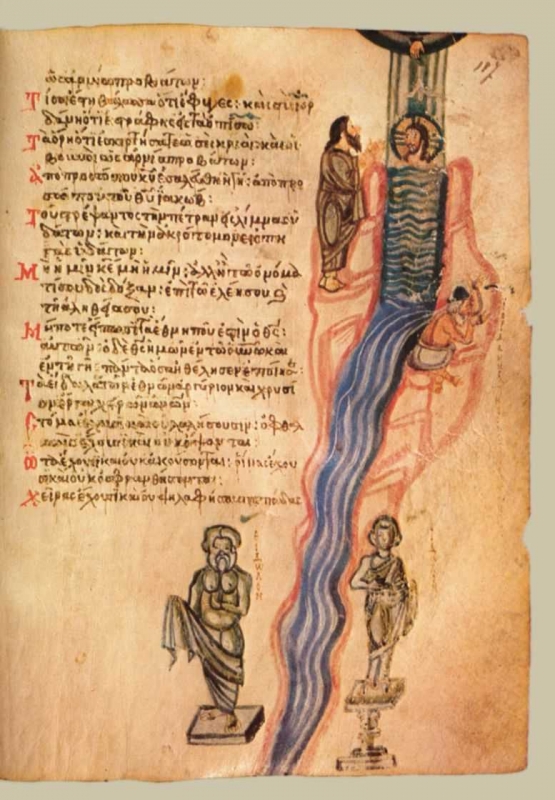 ὡς ἀρνία προβάτων:
Τί σοι ἐστὶ θάλασσα ὅτι ἔφυγες: καὶ σὺ ἰορ
δάνη ὅτι ἐστράφης εἰς τὰ ὀπίσω:
Τὰ ὄρη ὅτι ἐσκιρτήσατε ὡσεὶ κριοὶ: καὶ οἱ
βουνοὶ ὡς ἀρνία προβάτων:
Ἀπὸ προσώπου κυ ἐσαλεύθη ἡ γῆ: ἀπὸ προ
σώπου τοῦ θυ ἰακώβ:
Τοῦ στρέψαντος τὴν πέτραν εἰς λίμνας ὑ
δάτων: καὶ τὴν ἀκρότομον εἰς πη
γὰς ὑδάτων:
Μὴ ἡμῖν κε μὴ ἡμῖν: ἀλλ ἢ τῷ ὀνόμα
τί σου δὸς δόξαν: ἐπὶ τῷ ἐλέει σου ϗ
τῇ ἀληθείᾳ σου:
Μήποτε εἴπωσι τὰ ἔθνη ποῦ ἐστιν ὁ θς:
αὐτῶν: ὁ δὲ θς ἡμῶν ἐν τῷ οὐνω καὶ
ἐν τῇ γῇ: πάντα ὅσα ἠθέλησεν ἐποίησεν:
Τὰ εἴδωλα τῶν ἐθνῶν ἀργύριον καὶ χρυσί
ον ἔργα χειρῶν ἀνων:
Στόμα ἔχουσι καὶ οὐ λαλήσουσιν: ὀφθαλ
μοὺς ἔχουσι καὶ οὐκ ὄψονται:
Ὦτα ἔχουσι καὶ οὐκ ἀκούσονται: ῥῖνας ἔχου
σι καὶ οὐκ ὀσφρανθήσονται:
Χεῖρας ἔχουσι καὶ οὐ ψηλαφήσουσι: πόδας
ΕΙΔΩΛΟΝ